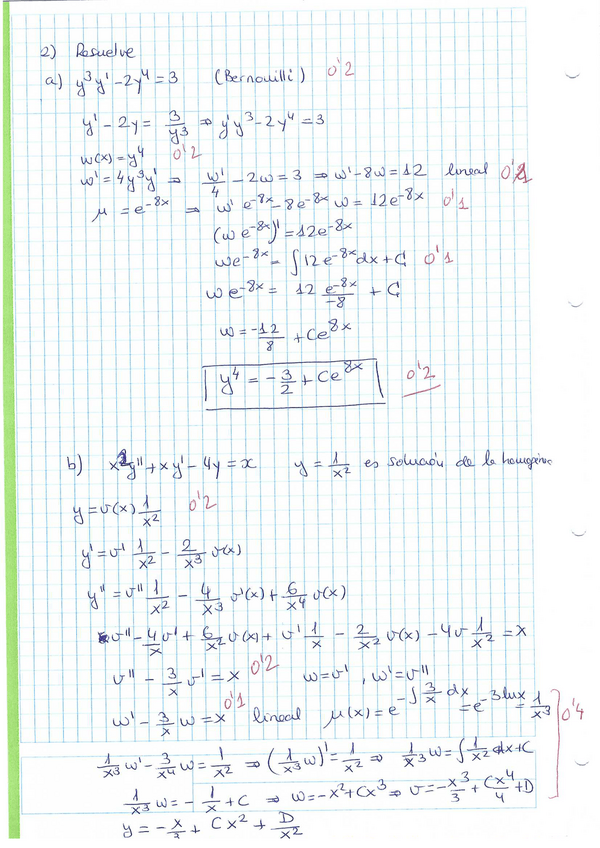 2) Resuelve
a) y³y' - 2y⁴ = 3 (Bernouilli) 0'2
y' - 2y = 3/y³ ⇒ y'y³ - 2y⁴ = 3
w(x) = y⁴ 0'2
w' = 4y³y' ⇒ w'/4 - 2w = 3 ⇒ w' - 8w = 12 lineal 0'1
μ = e^(-8x) ⇒ w' e^(-8x) - 8e^(-8x) w = 12e^(-8x) 0'1
(w e^(-8x))' = 12e^(-8x)
we^(-8x) = ∫12e^(-8x)dx + C 0'1
we^(-8x) = 12 e^(-8x)/-8 + C
w = -12/8 + Ce^(8x)
y⁴ = -3/2 + Ce^(8x) 0'2
b) x²y'' + xy' - 4y = x y = 1/x² es solución de la homogénea
y = v(x) 1/x² 0'2
y' = v' 1/x² - 2/x³ v(x)
y'' = v'' 1/x² - 4/x³ v'(x) + 6/x⁴ v(x)
v'' - 4/x v' + 6/x² v(x) + v' 1/x - 2/x² v(x) - 4v 1/x² = x
v'' - 3/x v' = x 0'2 w = v', w' = v''
w' - 3/x w = x 0'1 lineal μ(x) = e^(-∫3/x dx) = e^(-3lnx) = 1/x³ 0'4
1/x³ w' - 3/x⁴ w = 1/x² ⇒ (1/x³ w)' = 1/x² ⇒ 1/x³ w = ∫1/x² dx + C
1/x³ w = -1/x + C ⇒ w = -x² + Cx³ ⇒ v = -x³/3 + Cx⁴/4 + D
y = -x/3 + Cx² + D/x²